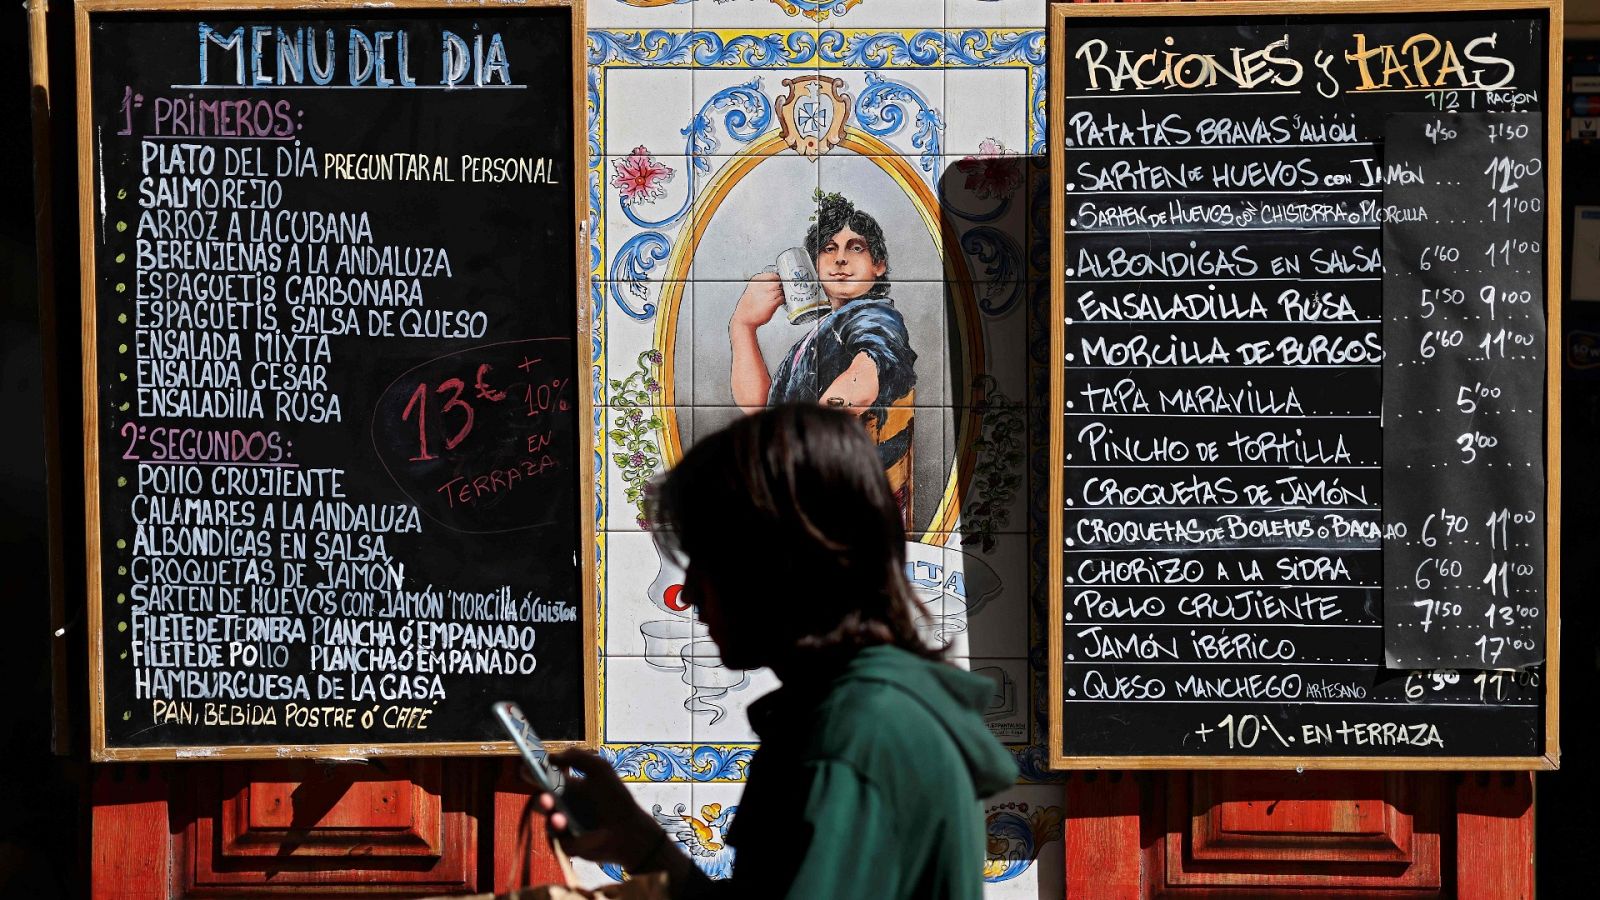 MENU DEL DÍA
1º PRIMEROS:
PLATO DEL DÍA PREGUNTAR AL PERSONAL
SALMOREJO
ARROZ A LA CUBANA
BERENJENAS A LA ANDALUZA
ESPAGUETIS CARBONARA
ESPAGUETIS SALSA DE QUESO
ENSALADA MIXTA
ENSALADA CESAR
ENSALADILLA RUSA
13€ + 10% EN TERRAZA
2º SEGUNDOS:
POLLO CRUJIENTE
CALAMARES A LA ANDALUZA
ALBONDIGAS EN SALSA
CROQUETAS DE JAMÓN
SARTEN DE HUEVOS CON JAMÓN 'MORCILLA Ó CHISTOR
FILETE DE TERNERA PLANCHA Ó EMPANADO
FILETE DE POLLO PLANCHA Ó EMPANADO
HAMBURGUESA DE LA CASA
PAN, BEBIDA POSTRE Ó CAFÉ
RACIONES Y TAPAS
1/2 1 RACION
PATATAS BRAVAS 'ALIOLI 4'50 7'50
SARTEN DE HUEVOS CON JAMÓN ... 12'00
SARTEN DE HUEVOS CON CHISTORRA O MORCILLA 11'00
ALBONDIGAS EN SALSA 6'60 11'00
ENSALADILLA RUSA 5'50 9'00
MORCILLA DE BURGOS 6'60 11'00
TAPA MARAVILLA 5'00
PINCHO DE TORTILLA 3'00
CROQUETAS DE JAMÓN
CROQUETAS DE BOLETUS O BACALAO 6'70 11'00
CHORIZO A LA SIDRA 6'60 11'00
POLLO CRUJIENTE 7'50 13'00
JAMÓN IBÉRICO 17'00
QUESO MANCHEGO ARTESANO 6'50 11'00
+10%. EN TERRAZA